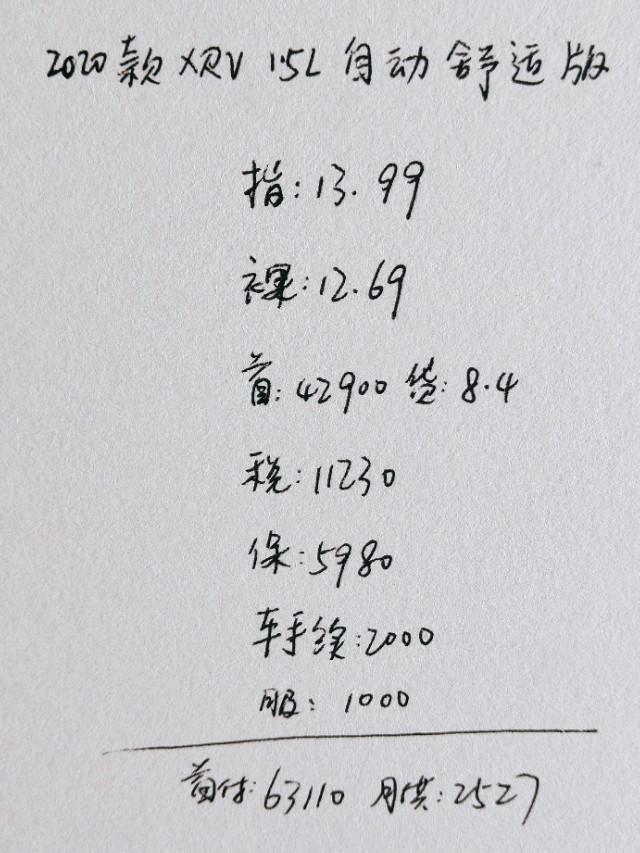 2020款 XRV 1.5L 自动舒适版
指:13.99
裸:12.69
首:42900 贷:8.4
税:11230
保:5980
车手续:2000
服:1000
首付:63110 月供:2527